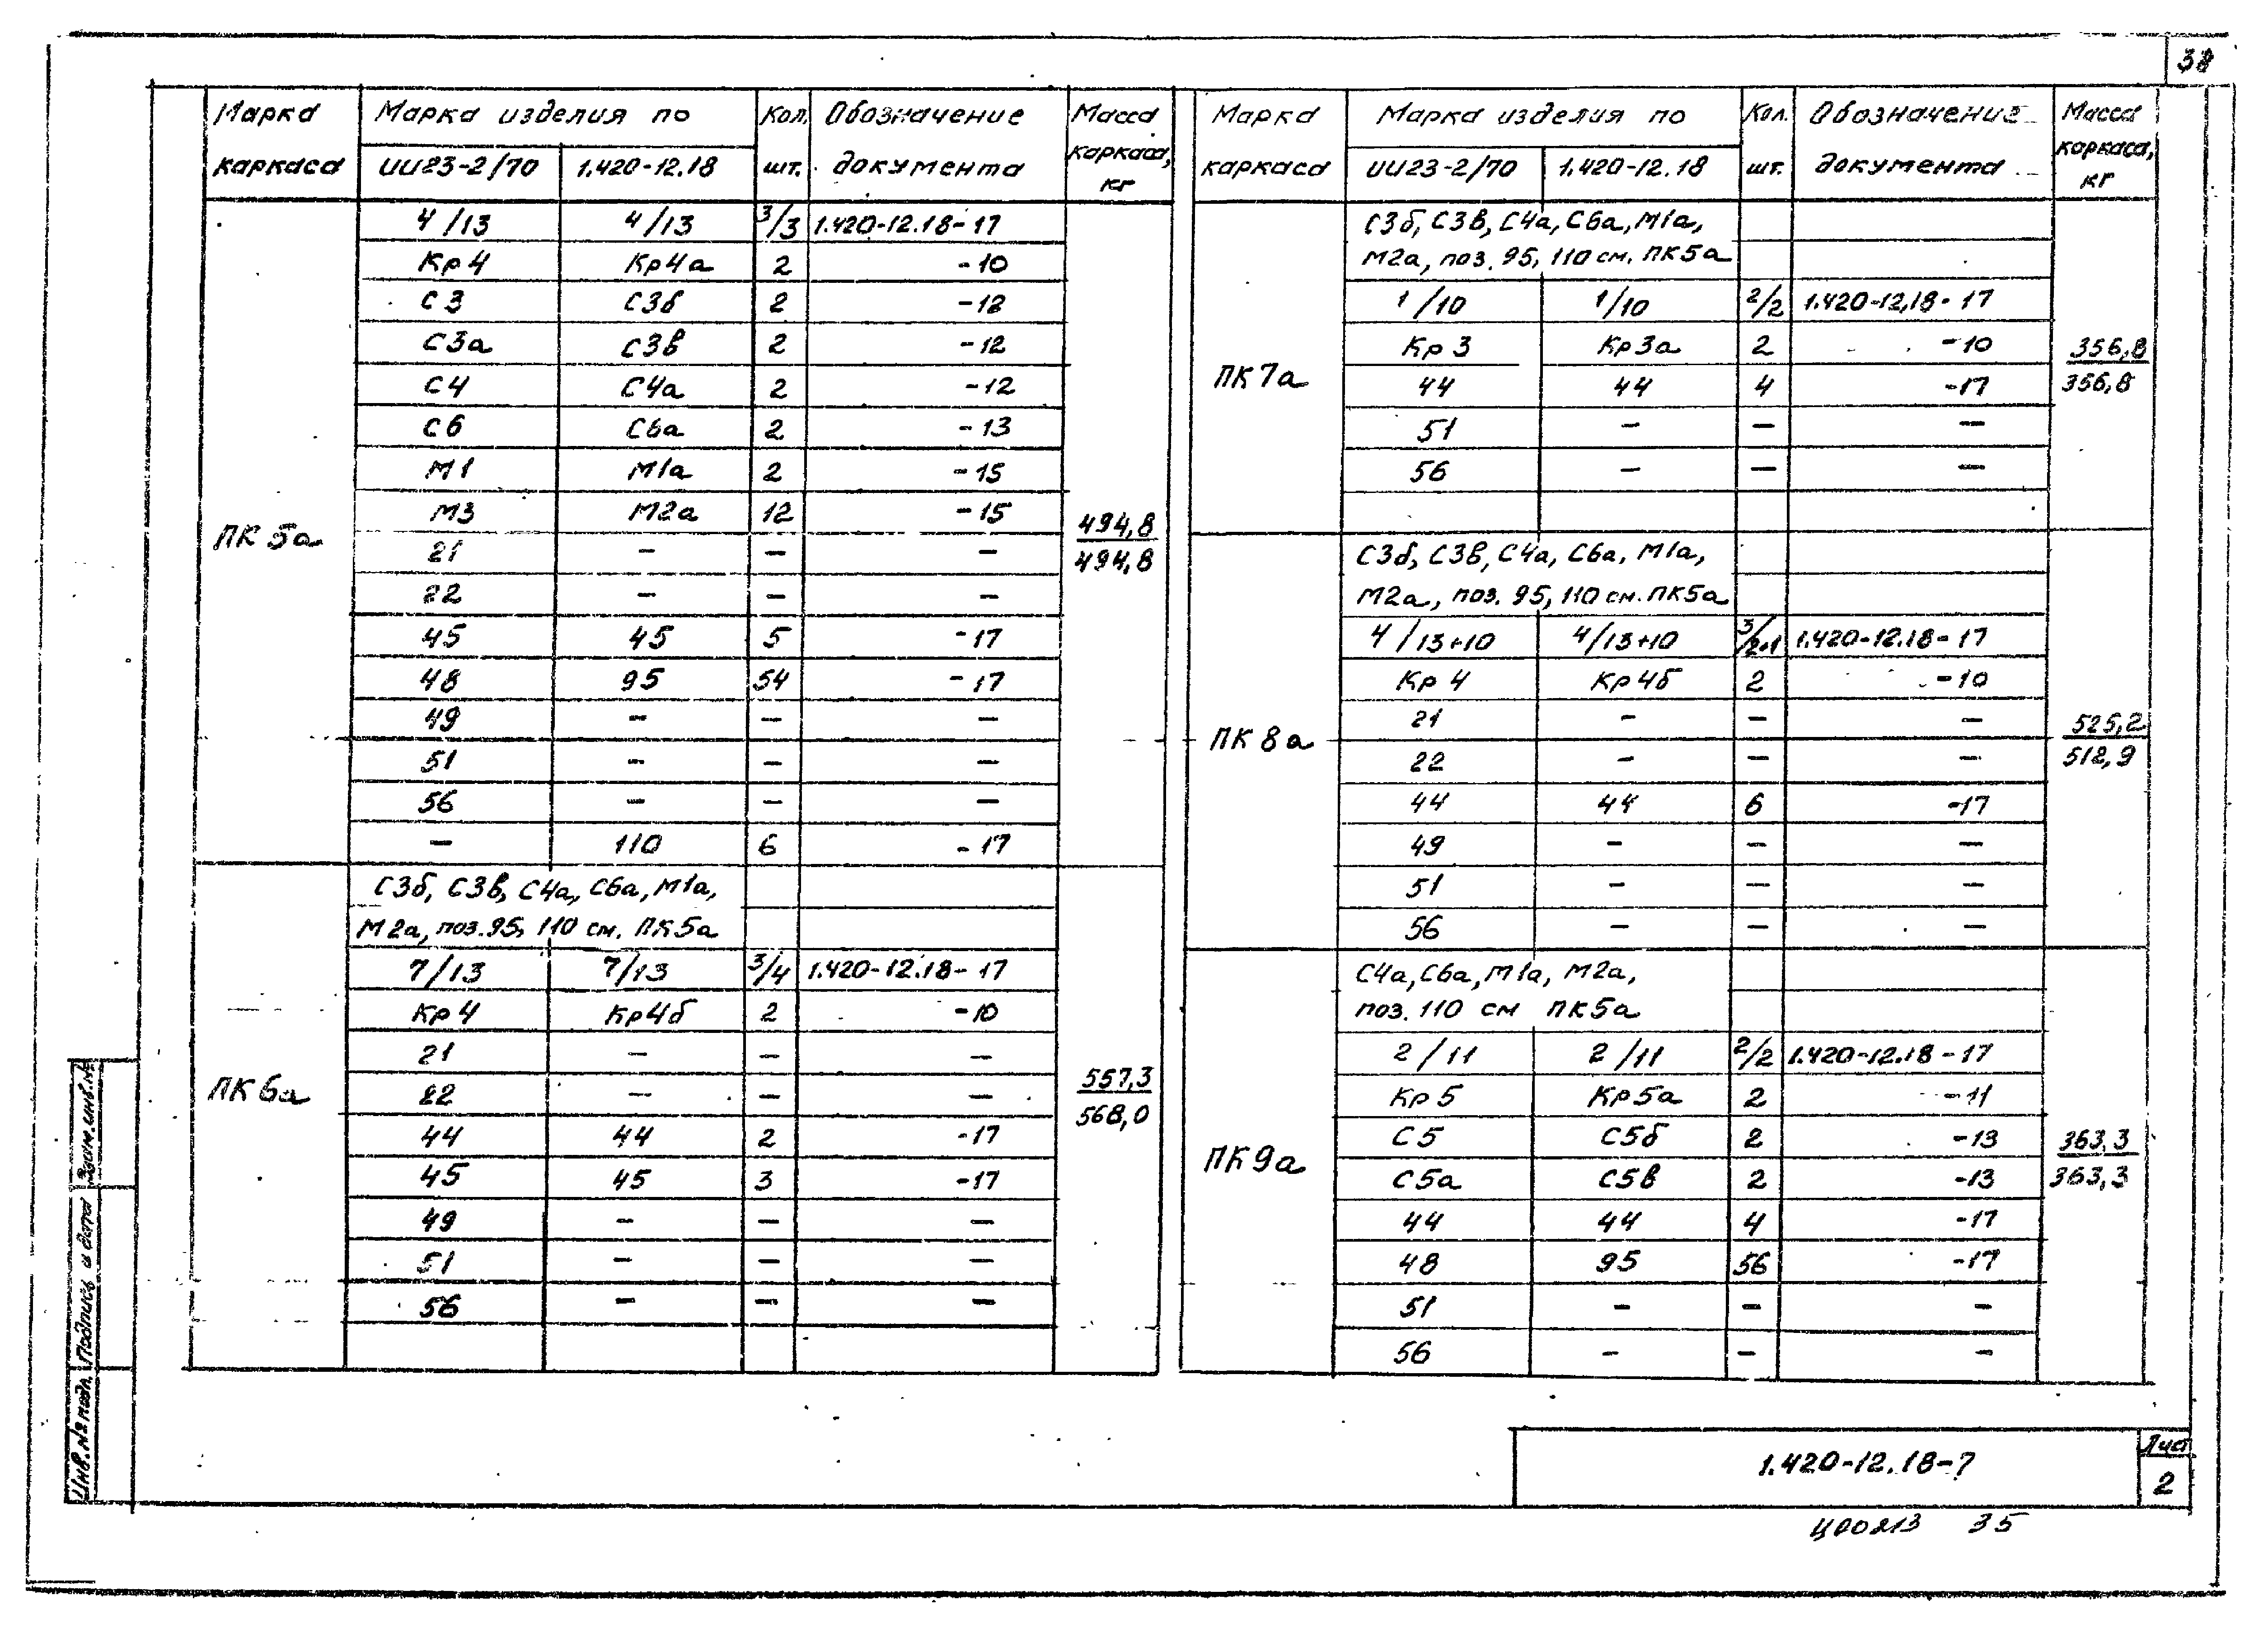 38
Марка каркаса | Марка изделия по | Кол. шт. | Обозначение документа | Масса каркаса, кг
ИИ23-2/70 | 1.420-12.18
ПК 5а
4/13 | 4/13 | 3/3 | 1.420-12.18-17
Кр4 | Кр4а | 2 | -10
С3 | С3б | 2 | -12
С3а | С3в | 2 | -12
С4 | С4а | 2 | -12
С6 | С6а | 2 | -13
М1 | М1а | 2 | -15
М3 | М2а | 12 | -15
21 | – | – | –
22 | – | – | –
45 | 45 | 5 | -17
48 | 95 | 54 | -17
49 | – | – | –
51 | – | – | –
56 | – | – | –
– | 110 | 6 | -17
494,8
494,8
ПК 6а
С3б, С3в, С4а, С6а, М1а,
М2а, поз. 95, 110 см. ПК5а
7/13 | 7/13 | 3/4 | 1.420-12.18-17
Кр4 | Кр4б | 2 | -10
21 | – | – | –
22 | – | – | –
44 | 44 | 2 | -17
45 | 45 | 3 | -17
49 | – | – | –
51 | – | – | –
56 | – | – | –
557,3
568,0
Марка каркаса | Марка изделия по | Кол. шт. | Обозначение документа | Масса каркаса, кг
ИИ23-2/70 | 1.420-12.18
ПК7а
С3б, С3в, С4а, С6а, М1а,
М2а, поз. 95, 110 см. ПК5а
1/10 | 1/10 | 2/2 | 1.420-12.18-17
Кр3 | Кр3а | 2 | -10
44 | 44 | 4 | -17
51 | – | – | –
56 | – | – | –
356,8
356,8
ПК 8а
С3б, С3в, С4а, С6а, М1а,
М2а, поз. 95, 110 см. ПК5а
4/13+10 | 4/13+10 | 3/2+1 | 1.420-12.18-17
Кр4 | Кр4б | 2 | -10
21 | – | – | –
22 | – | – | –
44 | 44 | 6 | -17
49 | – | – | –
51 | – | – | –
56 | – | – | –
525,2
512,9
ПК9а
С4а, С6а, М1а, М2а,
поз. 110 см ПК5а
2/11 | 2/11 | 2/2 | 1.420-12.18-17
Кр5 | Кр5а | 2 | -11
С5 | С5б | 2 | -13
С5а | С5в | 2 | -13
44 | 44 | 4 | -17
48 | 95 | 56 | -17
51 | – | – | –
56 | – | – | –
363,3
363,3
Инв. № подл. Подпись и дата Взам. инв. №
1.420-12.18-7
Лист
2
ЦО0213 35